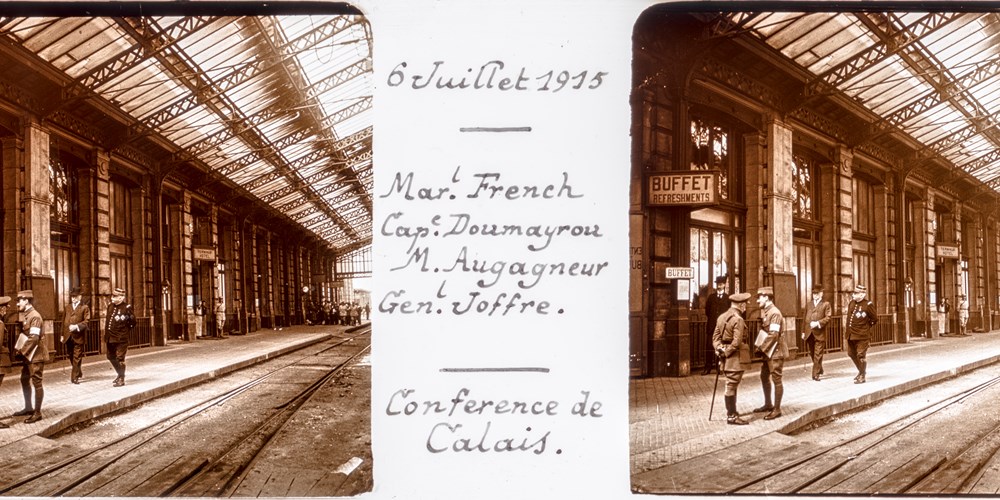 6 Juillet 1915
Mar.l French
Cap.e Doumayrou
M. Augagneur
Gen.l Joffre.
Conference de
Calais.
BUFFET
REFRESHMENTS
BUFFET